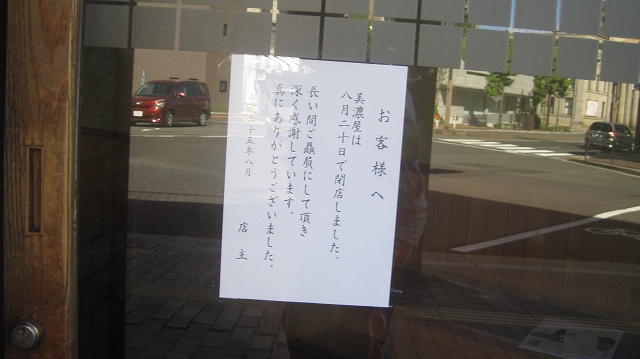 お客様へ
美濃屋は
八月二十日で閉店しました。
長い間ご贔屓にして頂き
深く感謝しています。
真にありがとうございました。
平成二十五年八月
店主